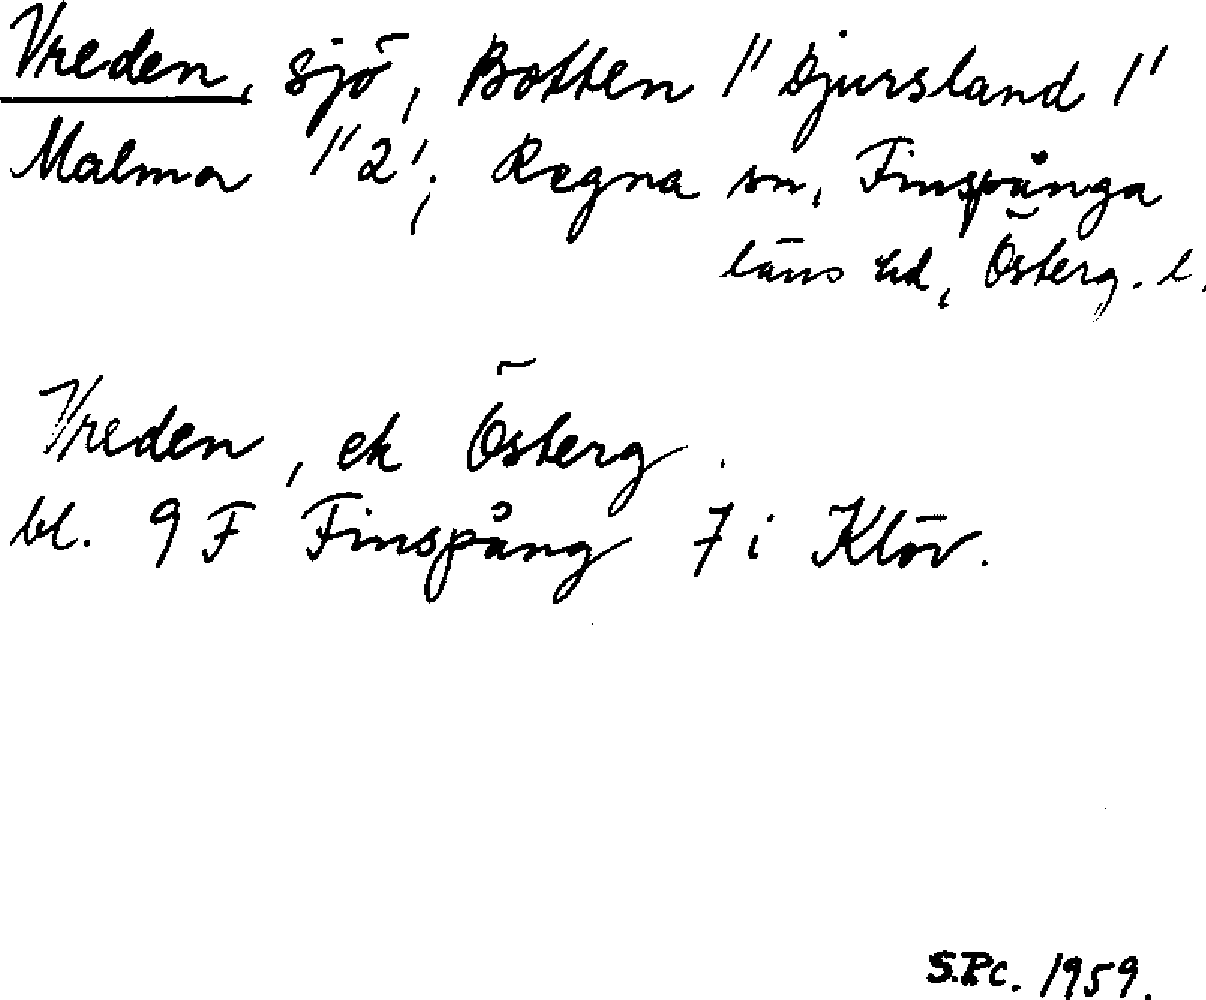 Vreden, sjö, Botten 1" Djursland 1'
Malma 1"2'; Regna sn, Finspånga
läns hd, Österg. l.
Vreden, ek Österg.
bl. 9 F Finspång 7 i Klöv.
S.Pc. 1959.